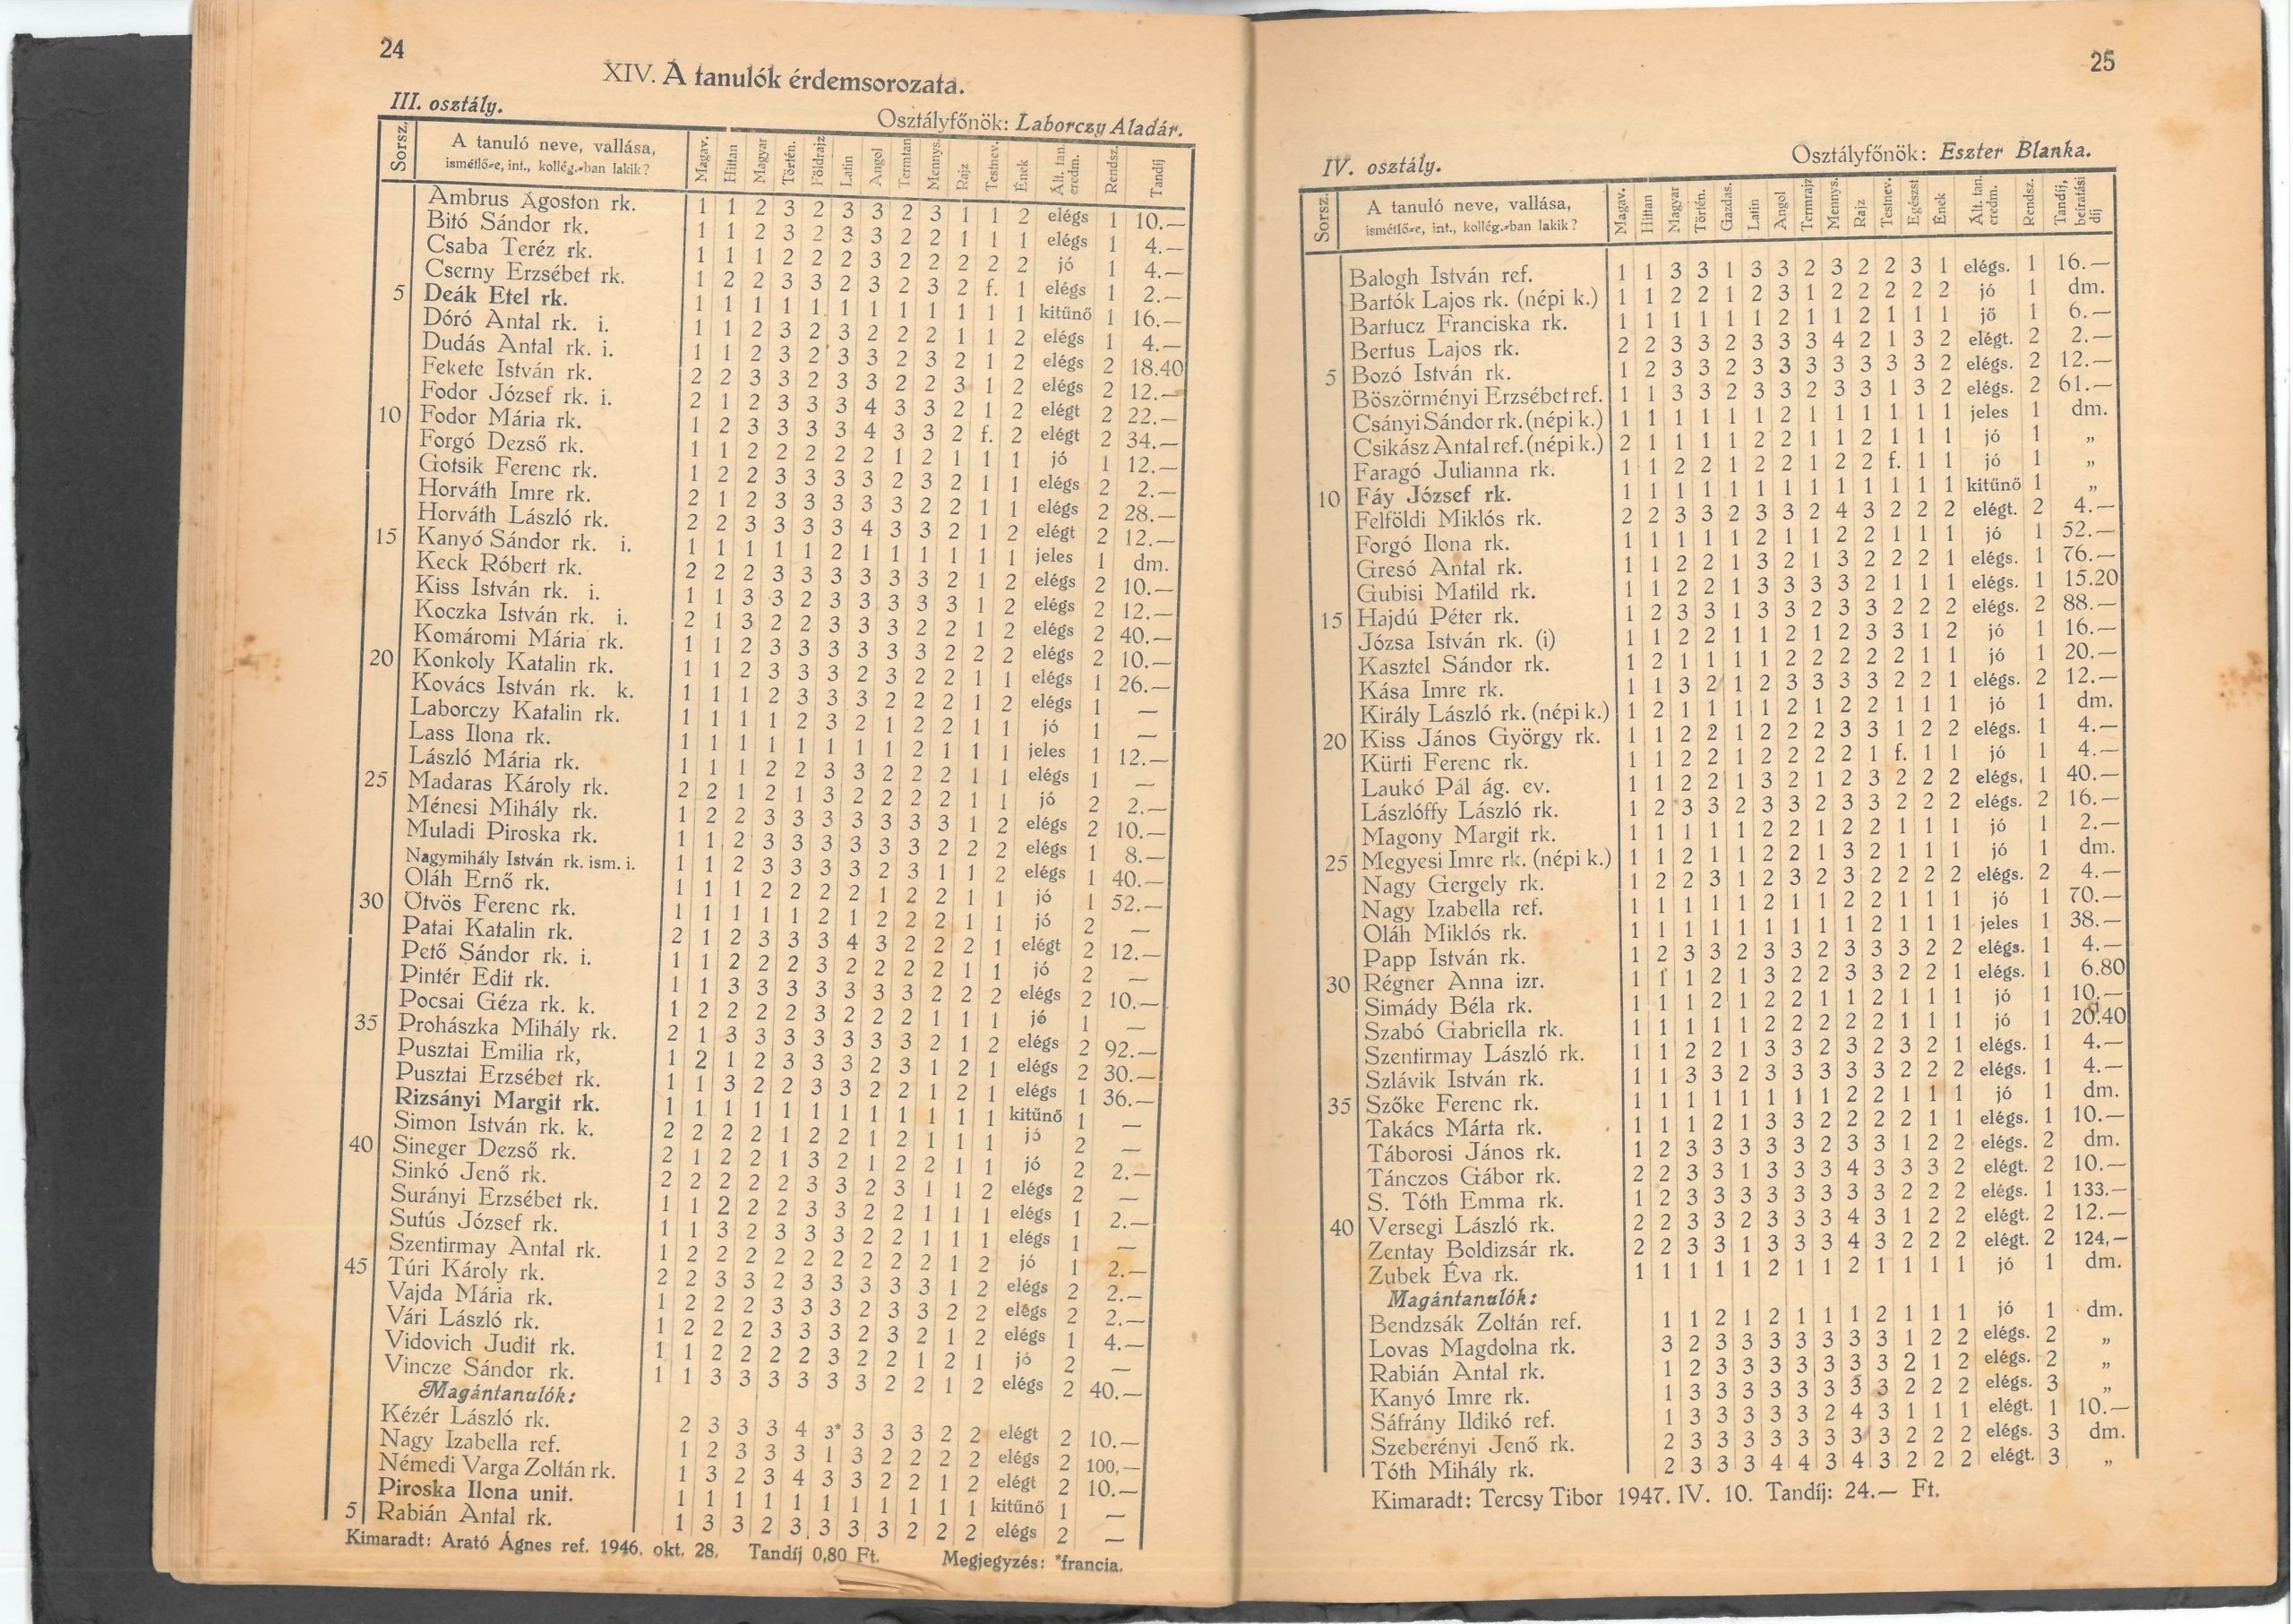 24
XIV. A tanulók érdemsorozata.
III. osztály. Osztályfőnök: Laborczy Aladár.
Sorsz. A tanuló neve, vallása, ismétlő-e, int., kollég.-ban lakik? Magav. Hittan Magyar Történ. Földrajz Latin Angol Termtan Mennys. Rajz Testnev. Ének Ált. tan. eredm. Rendsz. Tandíj
Ambrus Ágoston rk. 1 1 2 3 2 3 3 2 3 1 1 2 elégs 1 10.—
Bitó Sándor rk. 1 1 2 3 2 3 3 2 2 1 1 1 elégs 1 4.—
Csaba Teréz rk. 1 1 1 2 2 2 3 2 2 2 2 2 jó 1 4.—
Cserny Erzsébet rk. 1 2 2 3 3 2 3 2 3 2 f. 1 elégs 1 2.—
5 Deák Etel rk. 1 1 1 1 1 1 1 1 1 1 1 1 kitünő 1 16.—
Dóró Antal rk. i. 1 1 2 3 2 3 2 2 2 1 1 2 elégs 1 4.—
Dudás Antal rk. i. 1 1 2 3 2 3 3 2 3 2 1 2 elégs 2 18.40
Fekete István rk. 2 2 3 3 2 3 3 2 2 3 1 2 elégs 2 12.—
Fodor József rk. i. 2 1 2 3 3 3 4 3 3 2 1 2 elégt 2 22.—
10 Fodor Mária rk. 1 2 3 3 3 3 4 3 3 2 f. 2 elégt 2 34.—
Forgó Dezső rk. 1 1 2 2 2 2 2 1 2 1 1 1 jó 1 12.—
Gotsik Ferenc rk. 1 2 2 3 3 3 3 2 3 2 1 1 elégs 2 2.—
Horváth Imre rk. 2 1 2 3 3 3 3 3 2 2 1 1 elégs 2 28.—
Horváth László rk. 2 2 3 3 3 3 4 3 3 2 1 2 elégt 2 12.—
15 Kanyó Sándor rk. i. 1 1 1 1 1 2 1 1 1 1 1 1 jeles 1 dm.
Keck Róbert rk. 2 2 2 3 3 3 3 3 3 2 1 2 elégs 2 10.—
Kiss István rk. i. 1 1 3 3 2 3 3 3 3 3 1 2 elégs 2 12.—
Koczka István rk. i. 2 1 3 2 2 3 3 3 2 2 1 2 elégs 2 40.—
Komáromi Mária rk. 1 1 2 3 3 3 3 3 3 2 2 2 elégs 2 10.—
20 Konkoly Katalin rk. 1 1 2 3 3 3 2 3 2 2 1 1 elégs 1 26.—
Kovács István rk. k. 1 1 1 2 3 3 3 2 2 2 1 2 elégs 1 —
Laborczy Katalin rk. 1 1 1 1 2 3 2 1 2 2 1 1 jó 1 —
Lass Ilona rk. 1 1 1 1 1 1 1 1 2 1 1 1 jeles 1 12.—
László Mária rk. 1 1 1 2 2 3 3 2 2 2 1 1 elégs 1 —
25 Madaras Károly rk. 2 2 1 2 1 3 2 2 2 2 1 1 jó 2 2.—
Ménesi Mihály rk. 1 2 2 3 3 3 3 3 3 3 1 2 elégs 2 10.—
Muladi Piroska rk. 1 1 2 3 3 3 3 3 3 2 2 2 elégs 1 8.—
Nagymihály István rk. ism. i. 1 1 2 3 3 3 3 2 3 1 1 2 elégs 1 40.—
Oláh Ernő rk. 1 1 1 2 2 2 2 1 2 2 1 1 jó 1 52.—
30 Ötvös Ferenc rk. 1 1 1 1 1 2 1 2 2 2 1 1 jó 2 —
Patai Katalin rk. 2 1 2 3 3 3 4 3 2 2 2 1 elégt 2 12.—
Pető Sándor rk. i. 1 1 2 2 2 3 2 2 2 2 1 1 jó 2 —
Pintér Edit rk. 1 1 3 3 3 3 3 3 3 2 2 2 elégs 2 10.—
Pocsai Géza rk. k. 1 2 2 2 2 3 2 2 2 1 1 1 jó 1 —
35 Prohászka Mihály rk. 2 1 3 3 3 3 3 3 3 2 1 2 elégs 2 92.—
Pusztai Emilia rk, 1 2 1 2 3 3 3 2 3 1 2 1 elégs 2 30.—
Pusztai Erzsébet rk. 1 1 3 2 2 3 3 2 2 1 2 1 elégs 1 36.—
Rizsányi Margit rk. 1 1 1 1 1 1 1 1 1 1 1 1 kitünő 1 —
Simon István rk. k. 2 2 2 2 1 2 2 1 2 1 1 1 jó 2 —
40 Sineger Dezső rk. 2 1 2 2 1 3 2 1 2 2 1 1 jó 2 2.—
Sinkó Jenő rk. 2 2 2 2 2 3 3 2 3 1 1 2 elégs 2 —
Surányi Erzsébet rk. 1 1 2 2 2 3 3 2 2 1 1 1 elégs 1 2.—
Sutús József rk. 1 1 3 2 3 3 3 2 2 1 1 1 elégs 1 —
Szentirmay Antal rk. 1 2 2 2 2 2 2 2 2 2 1 2 jó 1 2.—
45 Túri Károly rk. 2 2 3 3 2 3 3 3 3 3 1 2 elégs 2 2.—
Vajda Mária rk. 1 2 2 2 3 3 3 2 3 3 2 2 elégs 2 2.—
Vári László rk. 1 2 2 2 3 3 3 2 3 2 1 2 elégs 1 4.—
Vidovich Judit rk. 1 1 2 2 2 2 3 2 2 1 2 1 jó 2 —
Vincze Sándor rk. 1 1 3 3 3 3 3 3 2 2 1 2 elégs 2 40.—
Magántanulók:
Kézér László rk. 2 3 3 3 4 3* 3 3 3 2 2 elégt 2 10.—
Nagy Izabella ref. 1 2 3 3 3 1 3 2 2 2 2 elégs 2 100,—
Némedi Varga Zoltán rk. 1 3 2 3 4 3 3 2 2 1 2 elégt 2 10.—
Piroska Ilona unit. 1 1 1 1 1 1 1 1 1 1 1 kitűnő 1 —
5 Rabián Antal rk. 1 3 3 2 3 3 3 3 2 2 2 elégs 2 —
Kimaradt: Arató Ágnes ref. 1946. okt. 28. Tandíj 0,80 Ft. Megjegyzés: *francia.
25
IV. osztály. Osztályfőnök: Eszter Blanka.
Sorsz. A tanuló neve, vallása, ismétlő-e, int., kollég.-ban lakik? Magav. Hittan Magyar Történ. Gazdas. Latin Angol Termrajz Mennys. Rajz Testnev. Egészst Ének Ált. tan. eredm. Rendsz. Tandíj, beíratási díj
Balogh István ref. 1 1 3 3 1 3 3 2 3 2 2 3 1 elégs. 1 16.—
Bartók Lajos rk. (népi k.) 1 1 2 2 1 2 3 1 2 2 2 2 2 jó 1 dm.
Bartucz Franciska rk. 1 1 1 1 1 1 2 1 1 2 1 1 1 jő 1 6.—
Bertus Lajos rk. 2 2 3 3 2 3 3 3 4 2 1 3 2 elégt. 2 2.—
5 Bozó István rk. 1 2 3 3 2 3 3 3 3 3 3 3 2 elégs. 2 12.—
Böszörményi Erzsébet ref. 1 1 3 3 2 3 3 2 3 3 1 3 2 elégs. 2 61.—
Csányi Sándor rk. (népi k.) 1 1 1 1 1 1 2 1 1 1 1 1 1 jeles 1 dm.
Csikász Antal ref. (népi k.) 2 1 1 1 1 2 2 1 1 2 1 1 1 jó 1 „
Faragó Julianna rk. 1 1 2 2 1 2 2 1 2 2 f. 1 1 jó 1 „
10 Fáy József rk. 1 1 1 1 1 1 1 1 1 1 1 1 1 kitünő 1 „
Felföldi Miklós rk. 2 2 3 3 2 3 3 2 4 3 2 2 2 elégt. 2 4.—
Forgó Ilona rk. 1 1 1 1 1 2 1 1 2 2 1 1 1 jó 1 52.—
Gresó Antal rk. 1 1 2 2 1 3 2 1 3 2 2 2 1 elégs. 1 76.—
Gubisi Matild rk. 1 1 2 2 1 3 3 3 3 2 1 1 1 elégs. 1 15.20
15 Hajdú Péter rk. 1 2 3 3 1 3 3 2 3 3 2 2 2 elégs. 2 88.—
Józsa István rk. (i) 1 1 2 2 1 1 2 1 2 3 3 1 2 jó 1 16.—
Kasztel Sándor rk. 1 2 1 1 1 1 2 2 2 2 2 1 1 jó 1 20.—
Kása Imre rk. 1 1 3 2 1 2 3 3 3 3 2 2 1 elégs. 2 12.—
Király László rk. (népi k.) 1 2 1 1 1 1 2 1 2 2 1 1 1 jó 1 dm.
20 Kiss János György rk. 1 1 2 2 1 2 2 2 3 3 1 2 2 elégs. 1 4.—
Kürti Ferenc rk. 1 1 2 2 1 2 2 2 2 1 f. 1 1 jó 1 4.—
Laukó Pál ág. ev. 1 1 2 2 1 3 2 1 2 3 2 2 2 elégs, 1 40.—
Lászlóffy László rk. 1 2 3 3 2 3 3 2 3 3 2 2 2 elégs. 2 16.—
Magony Margit rk. 1 1 1 1 1 2 2 1 2 2 1 1 1 jó 1 2.—
25 Megyesi Imre rk. (népi k.) 1 1 2 1 1 2 2 1 3 2 1 1 1 jó 1 dm.
Nagy Gergely rk. 1 2 2 3 1 2 3 2 3 2 2 2 2 elégs. 2 4.—
Nagy Izabella ref. 1 1 1 1 1 2 1 1 2 2 1 1 1 jó 1 70.—
Oláh Miklós rk. 1 1 1 1 1 1 1 1 1 2 1 1 1 jeles 1 38.—
Papp István rk. 1 2 3 3 2 3 3 2 3 3 3 2 2 elégs. 1 4.—
30 Régner Anna izr. 1 1 1 2 1 3 2 2 3 3 2 2 1 elégs. 1 6.80
Simády Béla rk. 1 1 1 2 1 2 2 1 1 2 1 1 1 jó 1 10.—
Szabó Gabriella rk. 1 1 1 1 1 2 2 2 2 2 1 1 1 jó 1 20.40
Szentirmay László rk. 1 1 2 2 1 3 3 2 3 2 3 2 1 elégs. 1 4.—
Szlávik István rk. 1 1 3 3 2 3 3 3 3 3 2 2 2 elégs. 1 4.—
35 Szőke Ferenc rk. 1 1 1 1 1 1 1 1 2 2 1 1 1 jó 1 dm.
Takács Márta rk. 1 1 1 2 1 3 3 2 2 2 2 1 1 elégs. 1 10.—
Táborosi János rk. 1 2 3 3 3 3 3 2 3 3 1 2 2 elégs. 2 dm.
Tánczos Gábor rk. 2 2 3 3 1 3 3 3 4 3 3 3 2 elégt. 2 10.—
S. Tóth Emma rk. 1 2 3 3 3 3 3 3 3 3 2 2 2 elégs. 1 133.—
40 Versegi László rk. 2 2 3 3 2 3 3 3 4 3 1 2 2 elégt. 2 12.—
Zentay Boldizsár rk. 2 2 3 3 1 3 3 3 4 3 2 2 2 elégt. 2 124,—
Zubek Éva rk. 1 1 1 1 1 2 1 1 2 1 1 1 1 jó 1 dm.
Magántanulók:
Bendzsák Zoltán ref. 1 1 2 1 2 1 1 1 2 1 1 1 jó 1 dm.
Lovas Magdolna rk. 3 2 3 3 3 3 3 3 3 1 2 2 elégs. 2 „
Rabián Antal rk. 1 2 3 3 3 3 3 3 3 2 1 2 elégs. 2 „
Kanyó Imre rk. 1 3 3 3 3 3 3 3 3 2 2 2 elégs. 3 „
Sáfrány Ildikó ref. 1 3 3 3 3 3 2 4 3 1 1 1 elégt. 1 10.—
Szeberényi Jenő rk. 2 3 3 3 3 3 3 3 3 2 2 2 elégs. 3 dm.
Tóth Mihály rk. 2 3 3 3 4 4 3 4 3 2 2 2 elégt. 3 „
Kimaradt: Tercsy Tibor 1947. IV. 10. Tandíj: 24.— Ft.